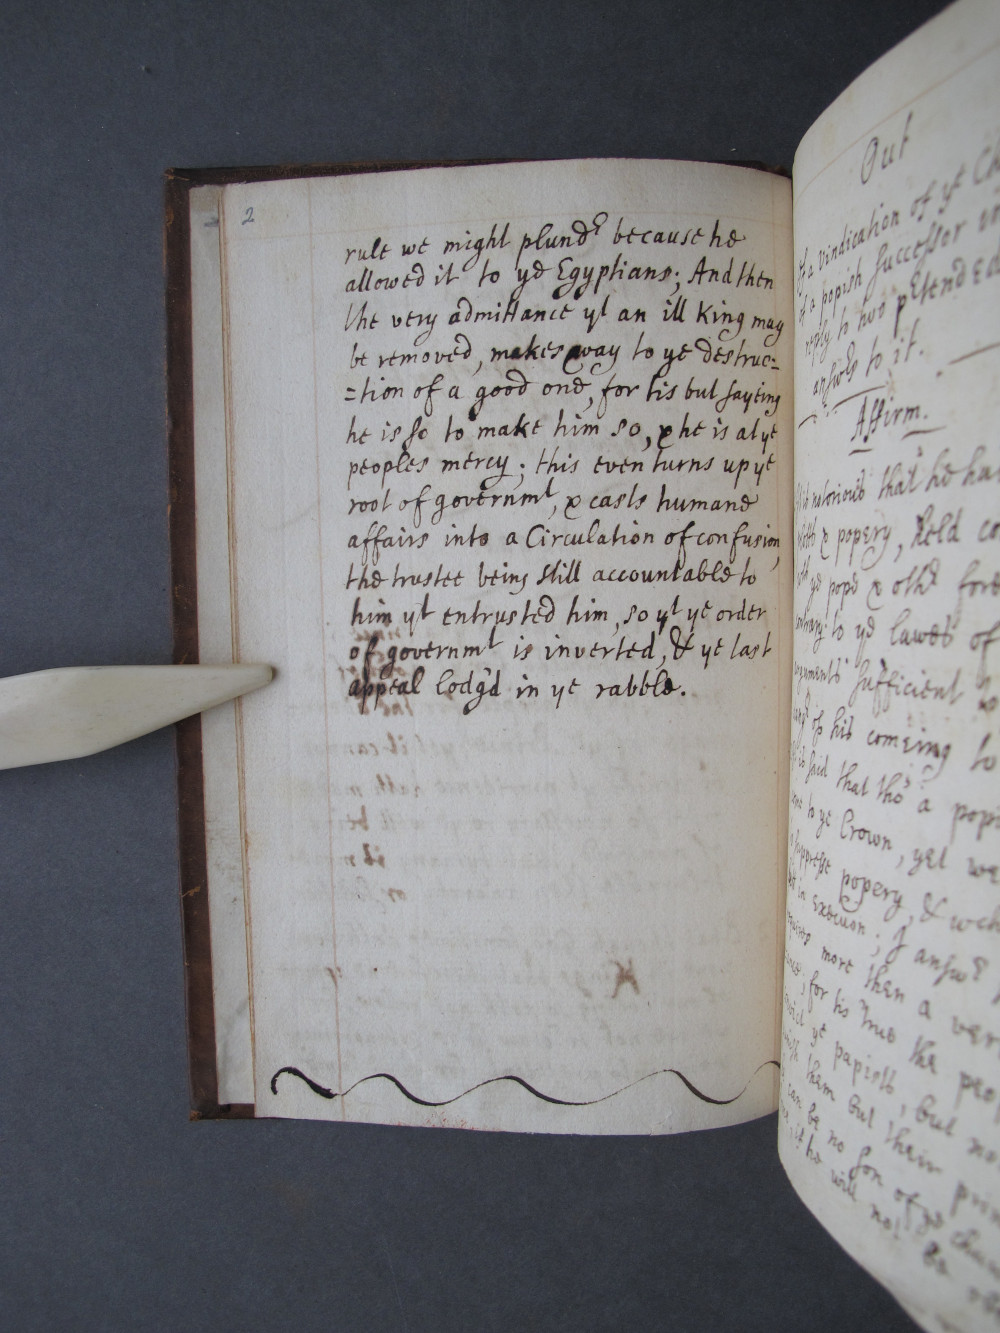 2
rule we might plundr because he
allowed it to ye Egyptians; And then
the very admittance yt an ill King may
be removed, makes way to ye destruc=
=tion of a good one, for tis but sayeing
he is so to make him so, & he is at ye
peoples mercy; this even turns up ye
root of governmt, & casts humane
affairs into a Circulation of confusion,
the trustee being still accountable to
him yt entrusted him, so yt ye order
of governmt is inverted, & ye last
appeal lodg'd in ye rabble.
Out
of a vindication of ye
of a popish successor in
reply to two ptended
answrs to it.
Affirm.
notorious that he has
& popery, held
ye pope & othr
to ye lawes of
arguments sufficient to
of his comeing to
said that tho' a
to ye Crown, yet we
suppress popery, &
in execuon; I answr
more then a very
for tis true the
ye papists, but
them but their
can be no son of ye
if he will not be